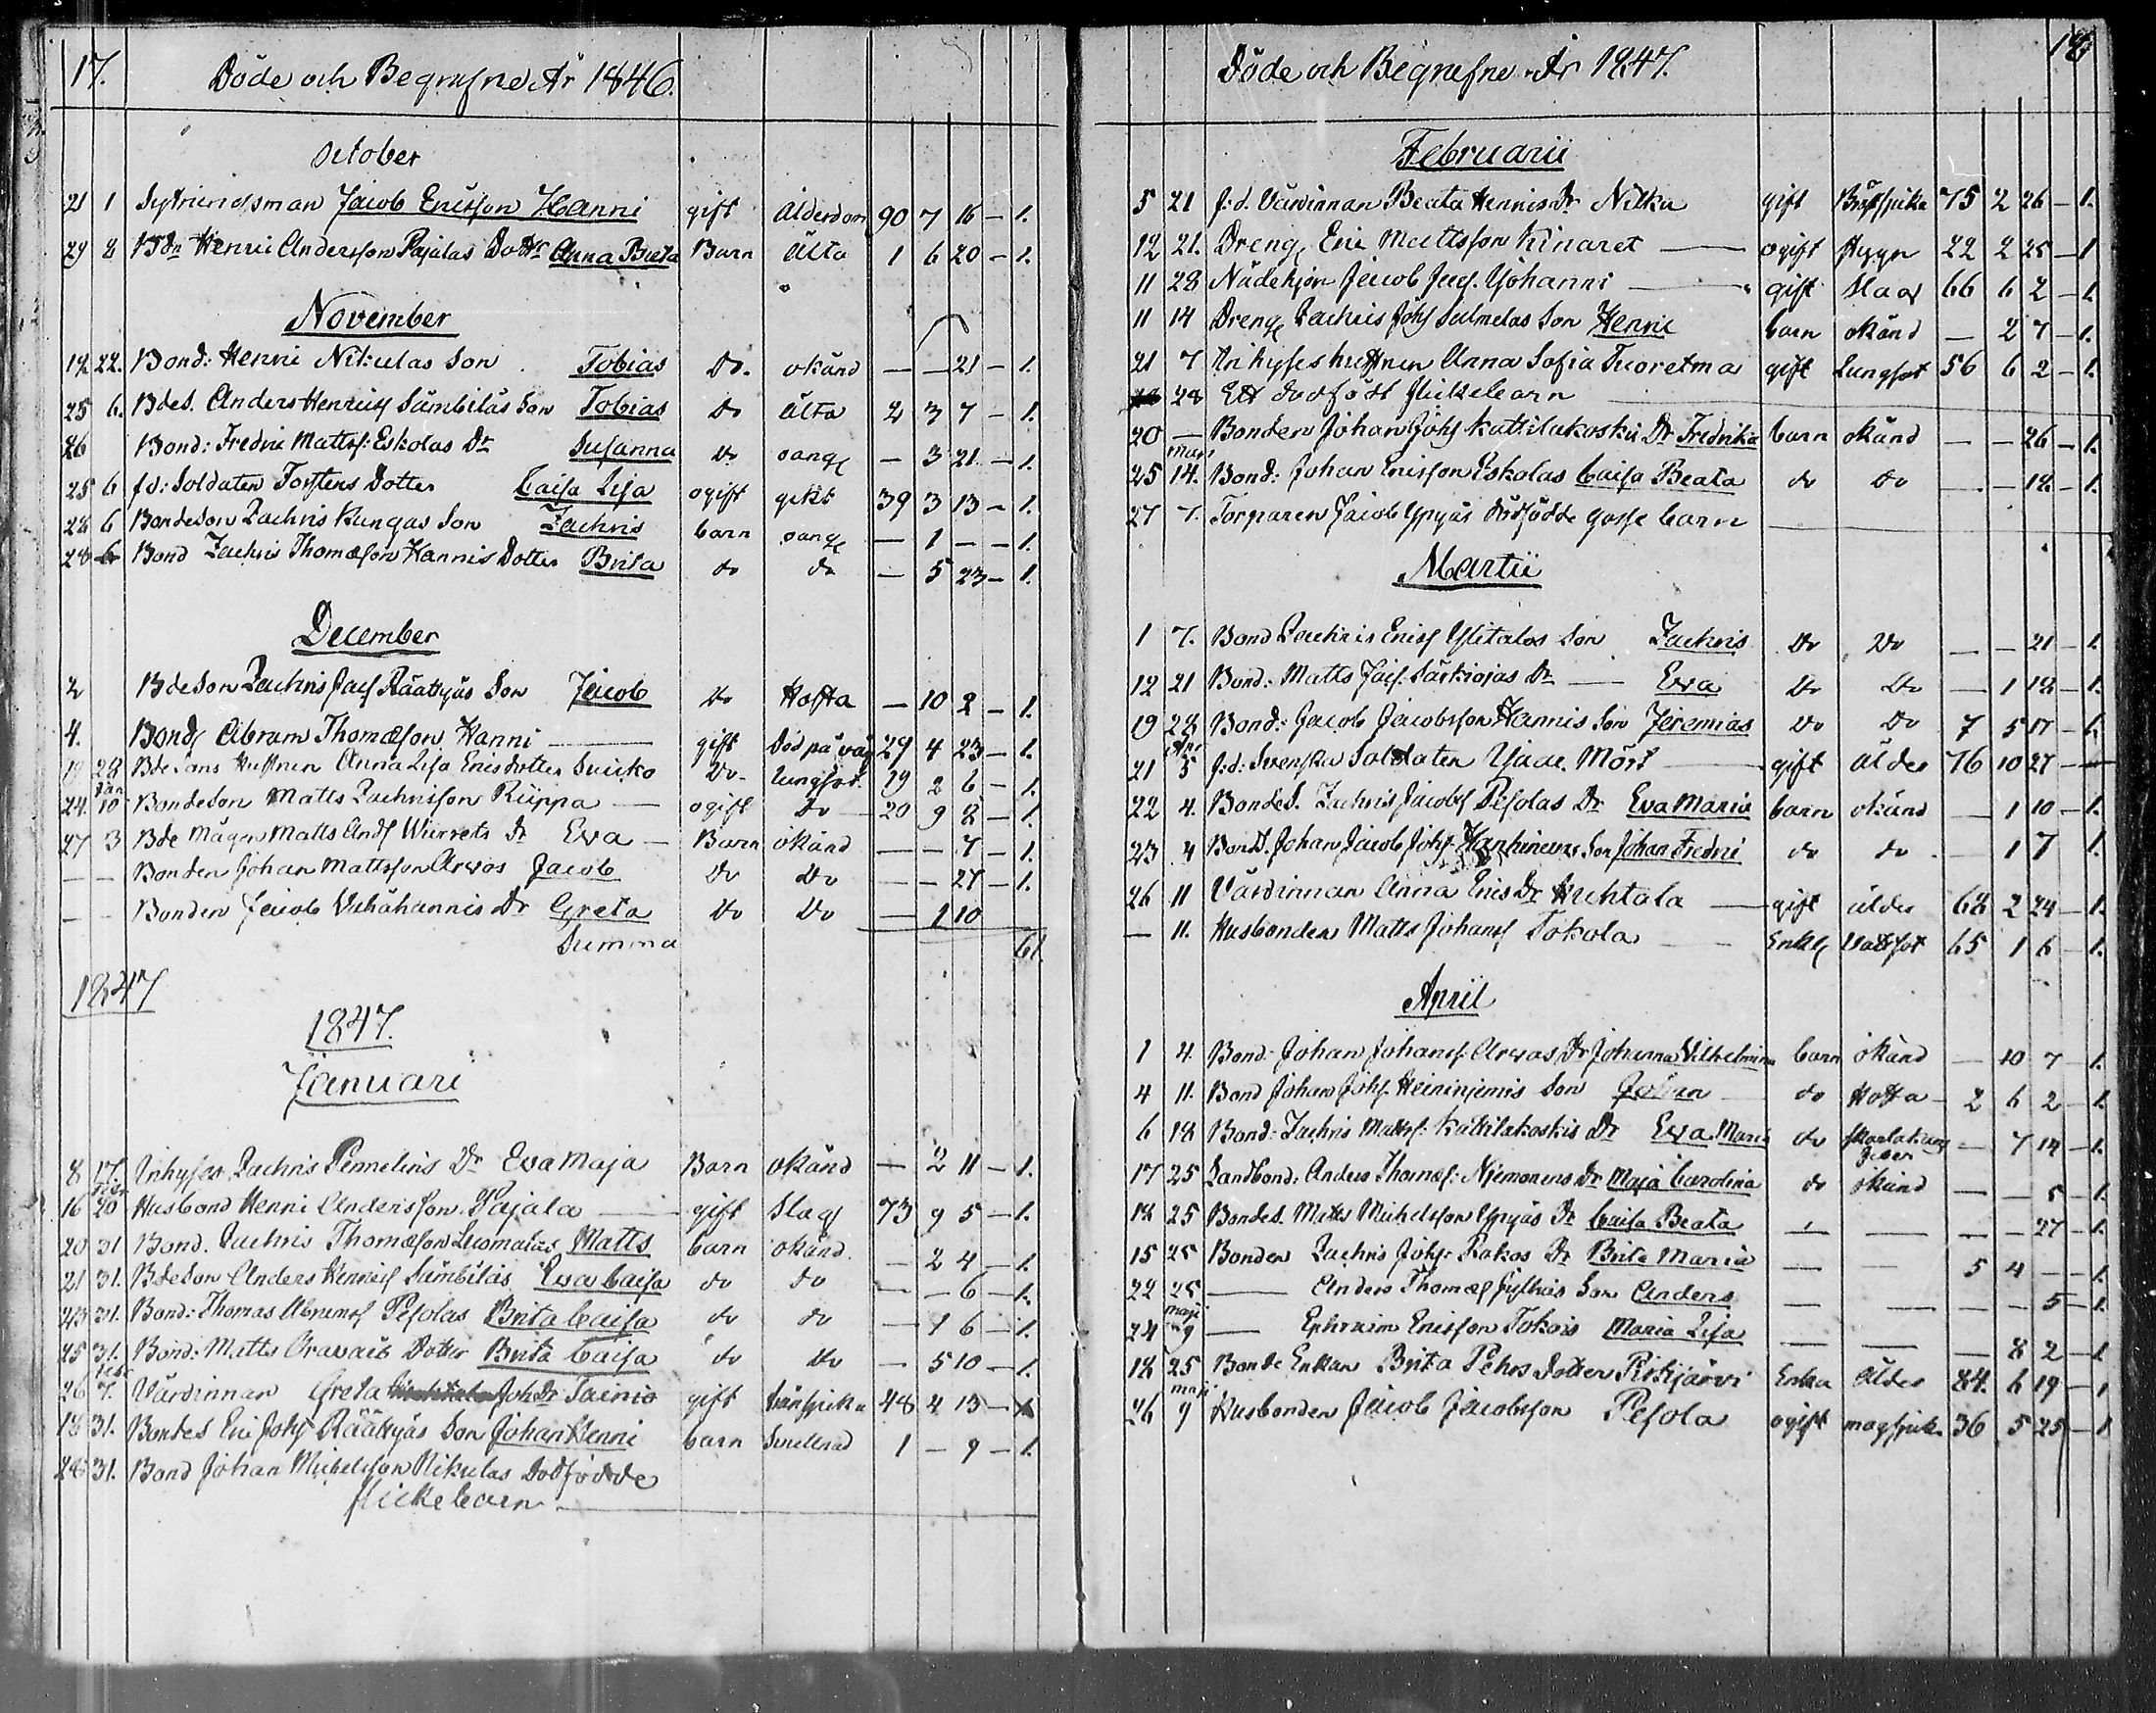 17. Döde och Begrafne År 1846.
October
21 1 Jacob Ericsson Hanni gift Ålderdom 90 7 16 – 1.
29 8 Bdn Henric Andersson Pajalas Dottr Anna Brita Barn Älta 1 6 20 – 1.
November
18 22. Bond: Henric Nikulas Son Tobias Do. okänd — — 21 – 1.
25 6. BdeS. Anders Henricss Sämbiläs Son Tobias do älta 2 3 7 – 1.
26 Bond: Fredric Mattss: Eskolas Dr Susanna do – 3 21 – 1.
25 6 fd: Soldaten Torstens Dotter Caisa Lisa ogift gikt 39 3 13 – 1.
28 6 Bondeson Zachris Kungas Son Zachris barn – 1 – – 1.
28 6 Bond Zachris Thomasson Hannis Dotter Brita do do – 5 23 – 1.
December
2 Bdeson Zachris Jacs Räättyäs Son Jacob do Hosta – 10 2 – 1.
4. Bond Abram Thomasson Hanni — gift död på väg 29 4 23 – 1.
19 28 Bdesons Hustrun Anna Lisa Ericsdotter Do. lungsot. 19 2 6 – 1.
24. Jan 10 Bondeson Matts Zachrisson Riippa — ogift do 20 9 8 – 1.
27 3 Bde Mågen Matts Ands Wirrets Dr Eva — Barn okänd – – 7 – 1.
— — Bonden Johan Mattsson Arvos Jacob do do – – 27 – 1.
— — Bonden Jacob Vähähannis Dr Greta do do – 1 10
Summa 61.
1847
1847.
Januari
8 17. Inhyses Zachris Pennelins Dr Eva Maja Barn okänd – 2 11 – 1.
16 Febr 20 Husbond Henric Andersson Pajala — gift Slag 73 9 5 – 1.
20 31 Bond. Zachris Thomasson Luomalas Matts barn okänd. – 2 4 – 1.
21 31. Bdeson Anders Henricss Sämbiläs Eva Caisa do do – – 6 – 1.
23 31. Bond: Thomas Abramss Pesolas Brita Caisa do do – 1 6 – 1.
25 31. Bond: Matts Oravais Dotter Brita Caisa do do – 5 10 – 1.
26 Febr 7. Värdinnan Greta Joh Dr Sainio gift 48 4 13 –
18 31. BondeS Eric Johs Räättyäs Son Johan Henric barn 1 – 9 – 1.
28 31. Bond Johan Michelsson Nikulas Dödfödde
flickebarn —
Döde och Begrafne År 1847. 18
Februarii
5 21 f.d. Värdinnan Beata Henrics Dr Nilka gift Bröstsjuka 75 2 26 – 1.
12 21. Dreng Eric Mattsson Kinaret — ogift 22 2 25 – 1
11 28 Nådehjon Jacob Jacs. Yohanni — gift Slag 66 6 2 – 1.
11 14 Dreng Zachris Johs Salmelas Son Henric barn okänd – 2 7 – 1.
21 7 Inhyses hustrun Anna Sofia Tuoretmaa gift Lungsot 56 6 2 – 1.
28 Ett dödfödt flickebarn
20 — Bonden Johan Johs Kattilakoskis Dr Fredrika barn okänd – – 26 – 1.
25 Mars 14. Bond: Johan Ericsson Eskolas Caisa Beata do do – – 18 – 1.
27 7. Torparen Jacob Ypyäs dödfödde gosse barn —
Martii
1 7. Bond Zachris Erics Ylitalos Son Zachris do do – – 21 – 1.
12 21 Bond: Matts Jacs. Särkiojas Dr — Eva do do – 1 18 – 1.
19 28 Bond: Jacob Jacobsson Hannis Son Jeremias do do 7 5 17 – 1.
21 Apr 5 f.d: Svenska Soldaten Isac. Mört — gift ålder 76 10 27 – —
22 4. BondeS. Zachris Jacobs Pesolas Dr Eva Maria barn okänd – 1 10 – 1.
23 4 BondS. Johan Jacob Johs. Hanhinens Son Johan Fredric do do – 1 7 1.
26 11 Värdinnan Anna Erics Dr Huhtala — gift ålder 68 2 24 – 1.
— 11. Husbonden Matts Johanss Tokola — Enkl 65 1 6 – 1.
April
1 4. Bond: Johan Johanss Arvos Dr Johanna Vilhelmina barn okänd – 10 7 – 1.
4 11. Bond Johan Johs. Heininiemis Son Johan do Hosta – 2 6 2 – 1.
6 18 Bond: Zachris Mattss: Kattilakoskis Dr Eva Maria do skarlakans
feber – 7 14 – 1.
17 25 Landbond: Anders Thomass: Njemonens Dr Maja Carolina do okänd – – 5 – 1.
18 25 BondeS. Matts Michelsson Ypyäs Dr Caisa Beata — — – – 27 – 1.
15 25 Bonden Zachris Johs: Rakos Dr Brita Maria — — 5 4 – – 1.
22 25 — Anders Thomass Son Anders — — – – 5 – 1.
24 maji 9 — Ephraim Ericsson Tokois Maria Lisa — — – 8 2 – 1
18 25 Bonde Enkan Brita Pehrs Dotter Riskijärvi Enka Ålder 84. 6 19 – 1
26 maji 9 Husbonden Jacob Jacobsson Pesola ogift magsjuk. 36 5 25 – 1